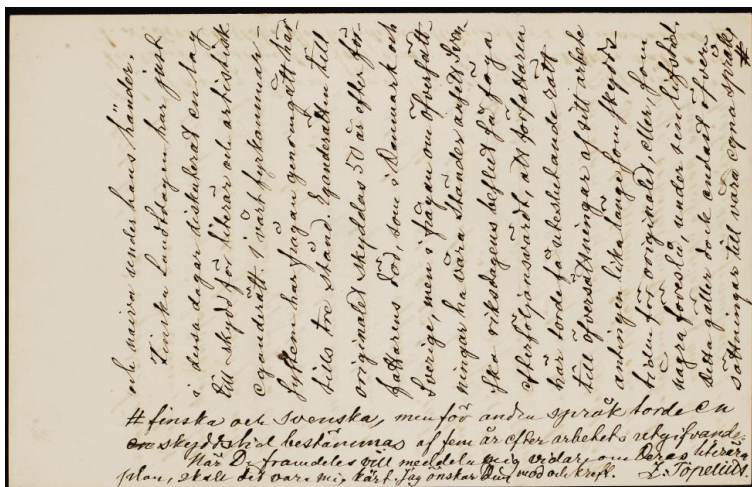 och vaira under hans händer.
Finska Landtdagen har just
i dessa dagar diskuterat en lag
till skydd för literär och artistisk
eganderätt. I vårt fyrkammar-
system har frågan genomgått här-
tills tre stånd. Eganderätten till
originalet skyddas 50 år efter för-
fattarens död, som i Danmark och
Sverige, men i frågan om öfversätt-
ningar ha våra Ständer ansett Sven-
ska riksdagens beslut så föga
efterföljansvärdt, att författaren
här torde få uteslutande rätt
till öfversättningar af sitt arbete
antingen lika länge, som skydds-
tiden för originalet, eller, som
några föreslå, under sin lifstid.
Detta gäller dock endast öfver-
sättningar till våra egna språk,
#
# finska och svenska, men för andra språk torde en
skyddstid bestämmas af fem år efter arbetets utgifvande.
När Du framdeles vill meddela mig vidare om Deras literära
plan, skall det vara mig kärt. Jag önskar Dem mod och kraft. Z. Topelius.